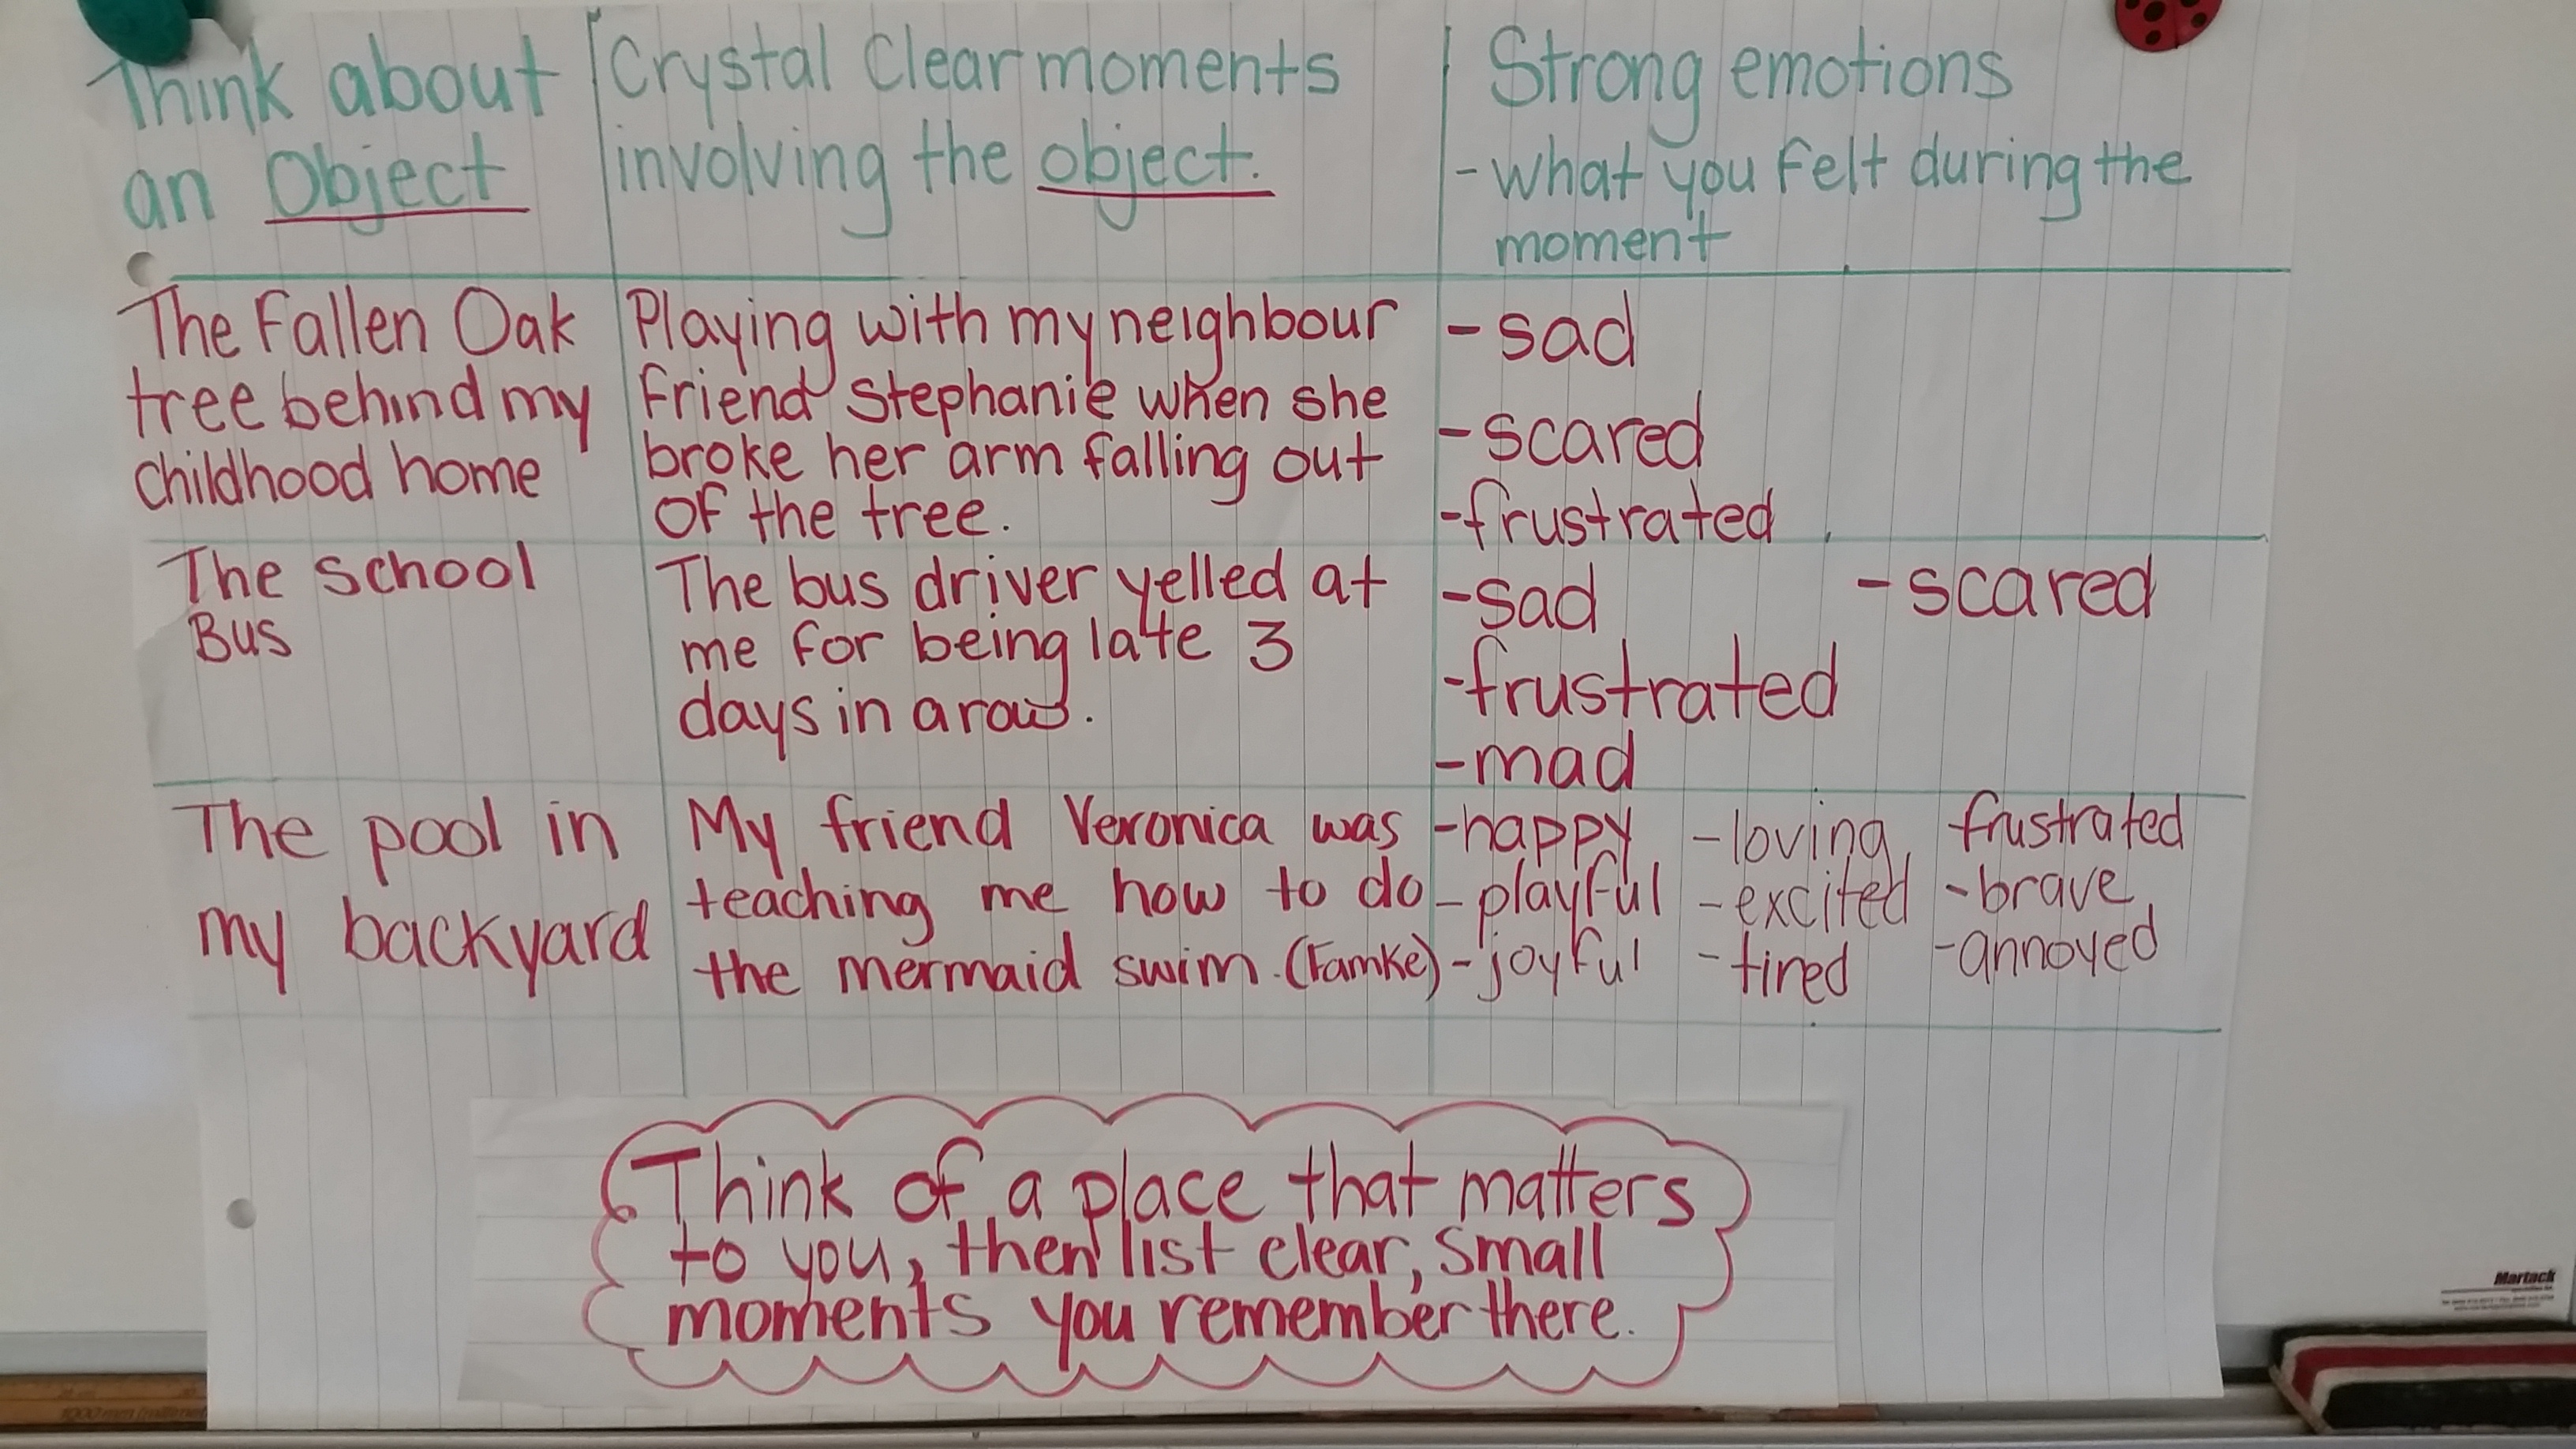 Think about
an Object
Crystal Clear moments
involving the object.
Strong emotions
- what you felt during the
moment
The Fallen Oak
tree behind my
childhood home
Playing with my neighbour
friend Stephanie when she
broke her arm falling out
of the tree.
- sad
- scared
- frustrated
The school
Bus
The bus driver yelled at
me for being late 3
days in a row.
- sad - scared
- frustrated
- mad
The pool in
my backyard
My friend Veronica was
teaching me how to do
the mermaid swim. (Famke)
- happy - loving frustrated
- playful - excited - brave
- joyful - tired - annoyed
Think of a place that matters
to you, then list clear, small
moments you remember there.
Martack